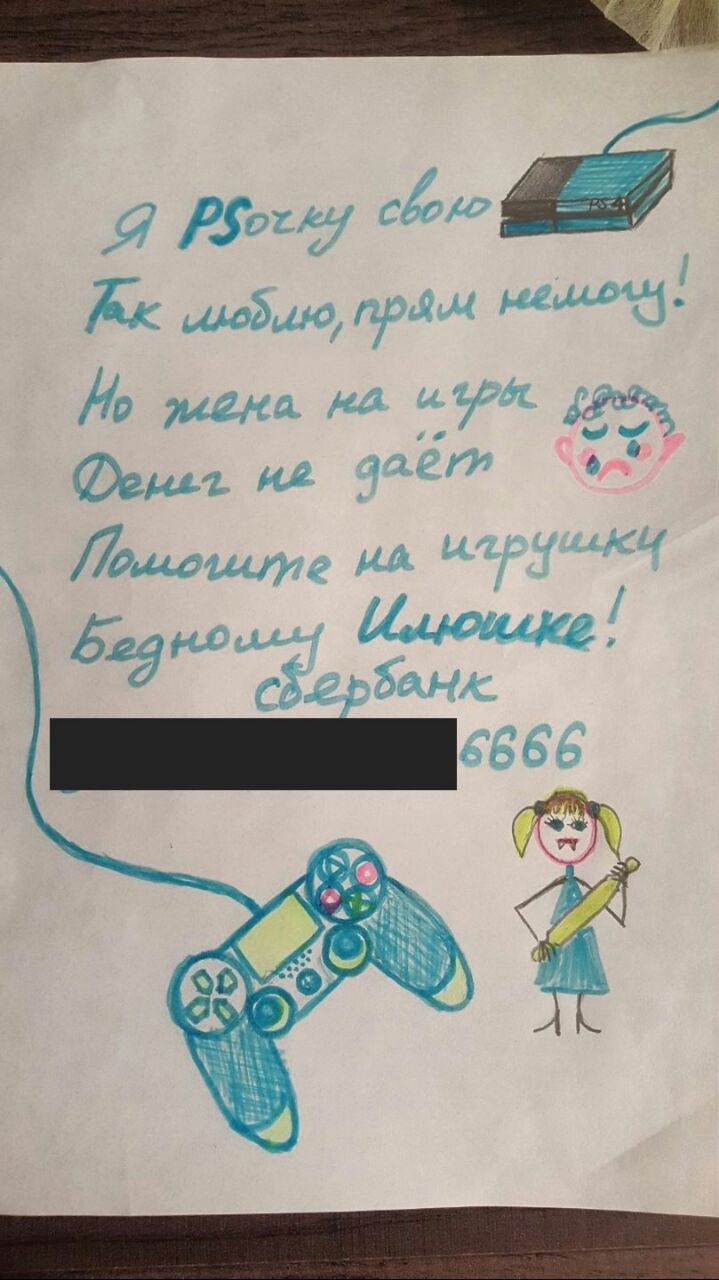 Я PSочку свою
PS4
Так люблю, прям немогу!
Но жена на игры
Денег не даёт
Помогите на игрушки
Бедному Илюшке!
сбербанк
6666